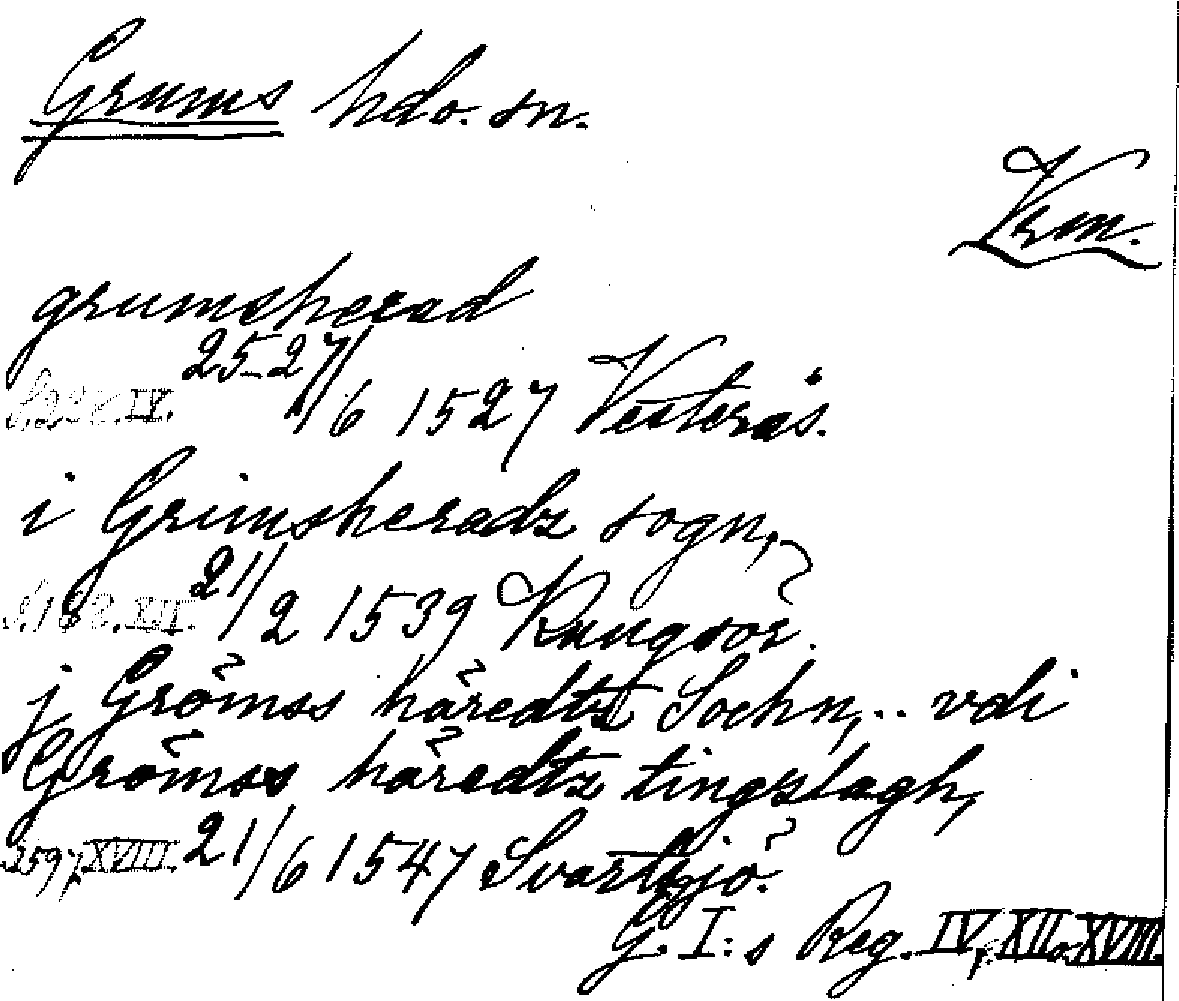 Grums hdo. sn.
Vrm.
grumsherad
IV. 25-27/6 1527 Vesterås.
i Grimsheradz sogn,
XII. 21/2 1539 Kungsör.
j Grömss häredtz Sochn, .. vdi
Grömss häredtz tingslagh,
XVIII. 21/6 1547 Svartsjö.
G. I:s Reg. IV, XII o. XVIII.